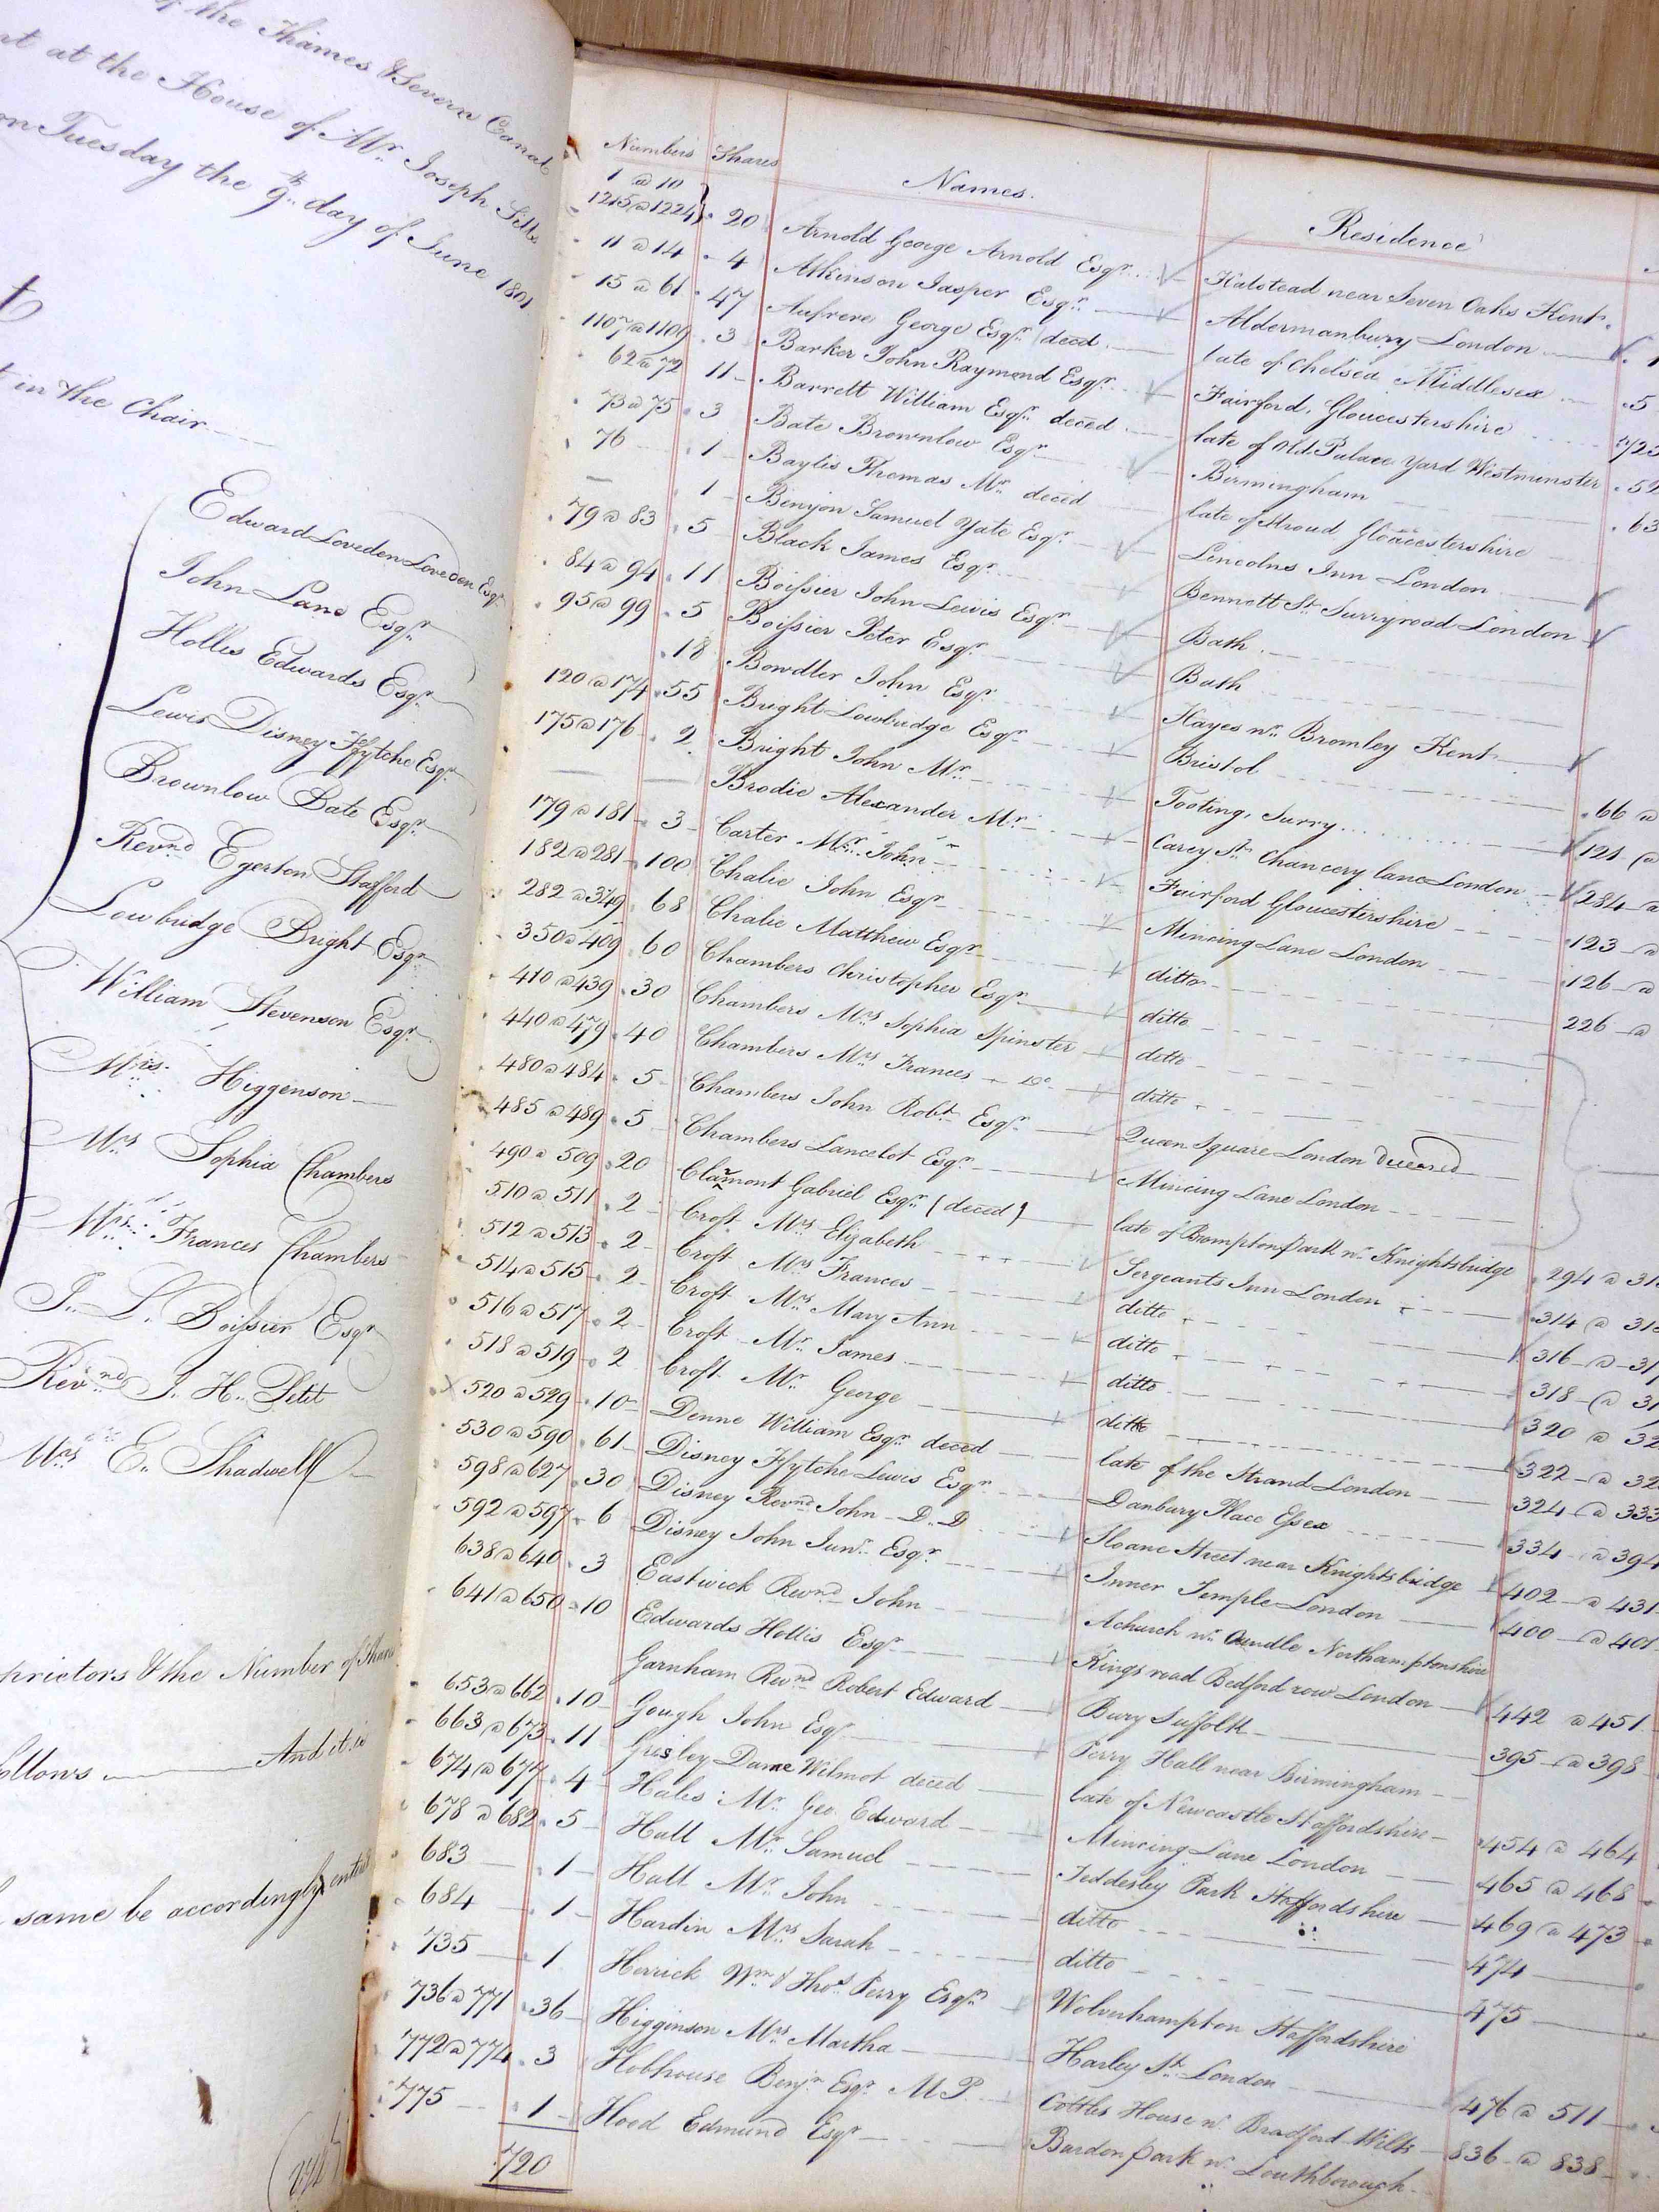 of the Thames & Severn Canal
at the House of Mr. Joseph Sills
on Tuesday the 9th day of June 1801
in the Chair
Edward Loveden Loveden Esqr.
John Lane Esqr.
Hollis Edwards Esqr.
Lewis Disney Ffytche Esqr.
Brownlow Bate Esqr.
Revnd. Egerton Stafford
Lowbridge Bright Esqr.
William Stevenson Esqr.
Mrs. Higgenson
Mrs. Sophia Chambers
Mrs. Frances Chambers
J. L. Boissier Esqr.
Revnd. J. H. Petit
Mrs. E. Shadwell
prietors & the Number of Shares
ollows And it is
same be accordingly
Numbers Shares Names. Residence
1 @ 10
1215 @ 1224 20 Arnold George Arnold Esqr. Halstead near Seven Oaks Kent.
11 @ 14 4 Atkinson Jasper Esqr. Aldermanbury London
15 @ 61 47 Aufrere George Esqr. deced. late of Chelsea Middlesex 5
1107 @ 1109 3 Barker John Raymond Esqr. Fairford, Gloucestershire
62 @ 72 11 Barrett William Esqr. deced. late of Old Palace Yard Westminster 52
73 @ 75 3 Bate Brownlow Esqr. Birmingham 63
76 1 Baylis Thomas Mr. deced late of Stroud Gloucestershire
1 Benyon Samuel Yate Esqr. Lincolns Inn London
79 @ 83 5 Black James Esqr. Bennett St. Surry road London
84 @ 94 11 Boissier John Lewis Esqr. Bath
95 @ 99 5 Boissier Peter Esqr. Bath
18 Bowdler John Esqr. Hayes nr. Bromley Kent
120 @ 174 55 Bright Lowbridge Esqr. Bristol 66 @
175 @ 176 2 Bright John Mr. Tooting, Surry 121 @
Brodie Alexander Mr. Carey St. Chancery lane London 284 @
179 @ 181 3 Carter Mr. John Fairford Gloucestershire 123 @
182 @ 281 100 Chalie John Esqr. Mincing Lane London 126 @
282 @ 349 68 Chalie Matthew Esqr. ditto 226 @
350 @ 409 60 Chambers Christopher Esqr. ditto
410 @ 439 30 Chambers Mrs. Sophia Spinster ditto
440 @ 479 40 Chambers Mrs. Frances Do. ditto
480 @ 484 5 Chambers John Robt. Esqr. Queen Square London deceased
485 @ 489 5 Chambers Lancelot Esqr. Mincing Lane London
490 @ 509 20 Clamont Gabriel Esqr. (deced) late of Brompton Park nr. Knightsbridge 294 @ 31
510 @ 511 2 Croft Mrs. Elizabeth Sergeants Inn London 314 @ 31
512 @ 513 2 Croft Mrs. Frances ditto 316 @ 31
514 @ 515 2 Croft Mrs. Mary Ann ditto 318 @ 31
516 @ 517 2 Croft Mr. James ditto 320 @ 32
518 @ 519 2 Croft Mr. George ditto 322 @ 32
520 @ 529 10 Denne William Esqr. deced late of the Strand London 324 @ 333
530 @ 590 61 Disney Ffytche Lewis Esqr. Danbury Place Essex 334 @ 394
598 @ 627 30 Disney Revnd. John D.D Sloane Street near Knightsbridge 402 @ 431
592 @ 597 6 Disney John Junr. Esqr. Inner Temple London 400 @ 401
638 @ 640 3 Eastwick Revnd. John Achurch nr. Oundle Northamptonshire
641 @ 650 10 Edwards Hollis Esqr. Kings road Bedford row London 442 @ 451
Garnham Revnd. Robert Edward Bury Suffolk 395 @ 398
653 @ 662 10 Gough John Esqr. Perry Hall near Birmingham
663 @ 673 11 Grisley Dame Wilmot deced late of Newcastle Staffordshire 454 @ 464
674 @ 677 4 Hales Mr. Geo. Edward Mincing Lane London 465 @ 468
678 @ 682 5 Hall Mr. Samuel Teddesley Park Staffordshire 469 @ 473
683 1 Hall Mr. John ditto 474
684 1 Hardin Mrs. Sarah ditto 475
735 1 Herrick Wm. & Thos. Perry Esqrs. Wolverhampton Staffordshire
736 @ 771 36 Higginson Mrs. Martha Harley St. London 476 @ 511
772 @ 774 3 Hobhouse Benjn. Esqr. M P. Cottles House nr. Bradford Wilts 836 @ 838
775 1 Hood Edmund Esqr. Bardon Park nr. Louthborough
720